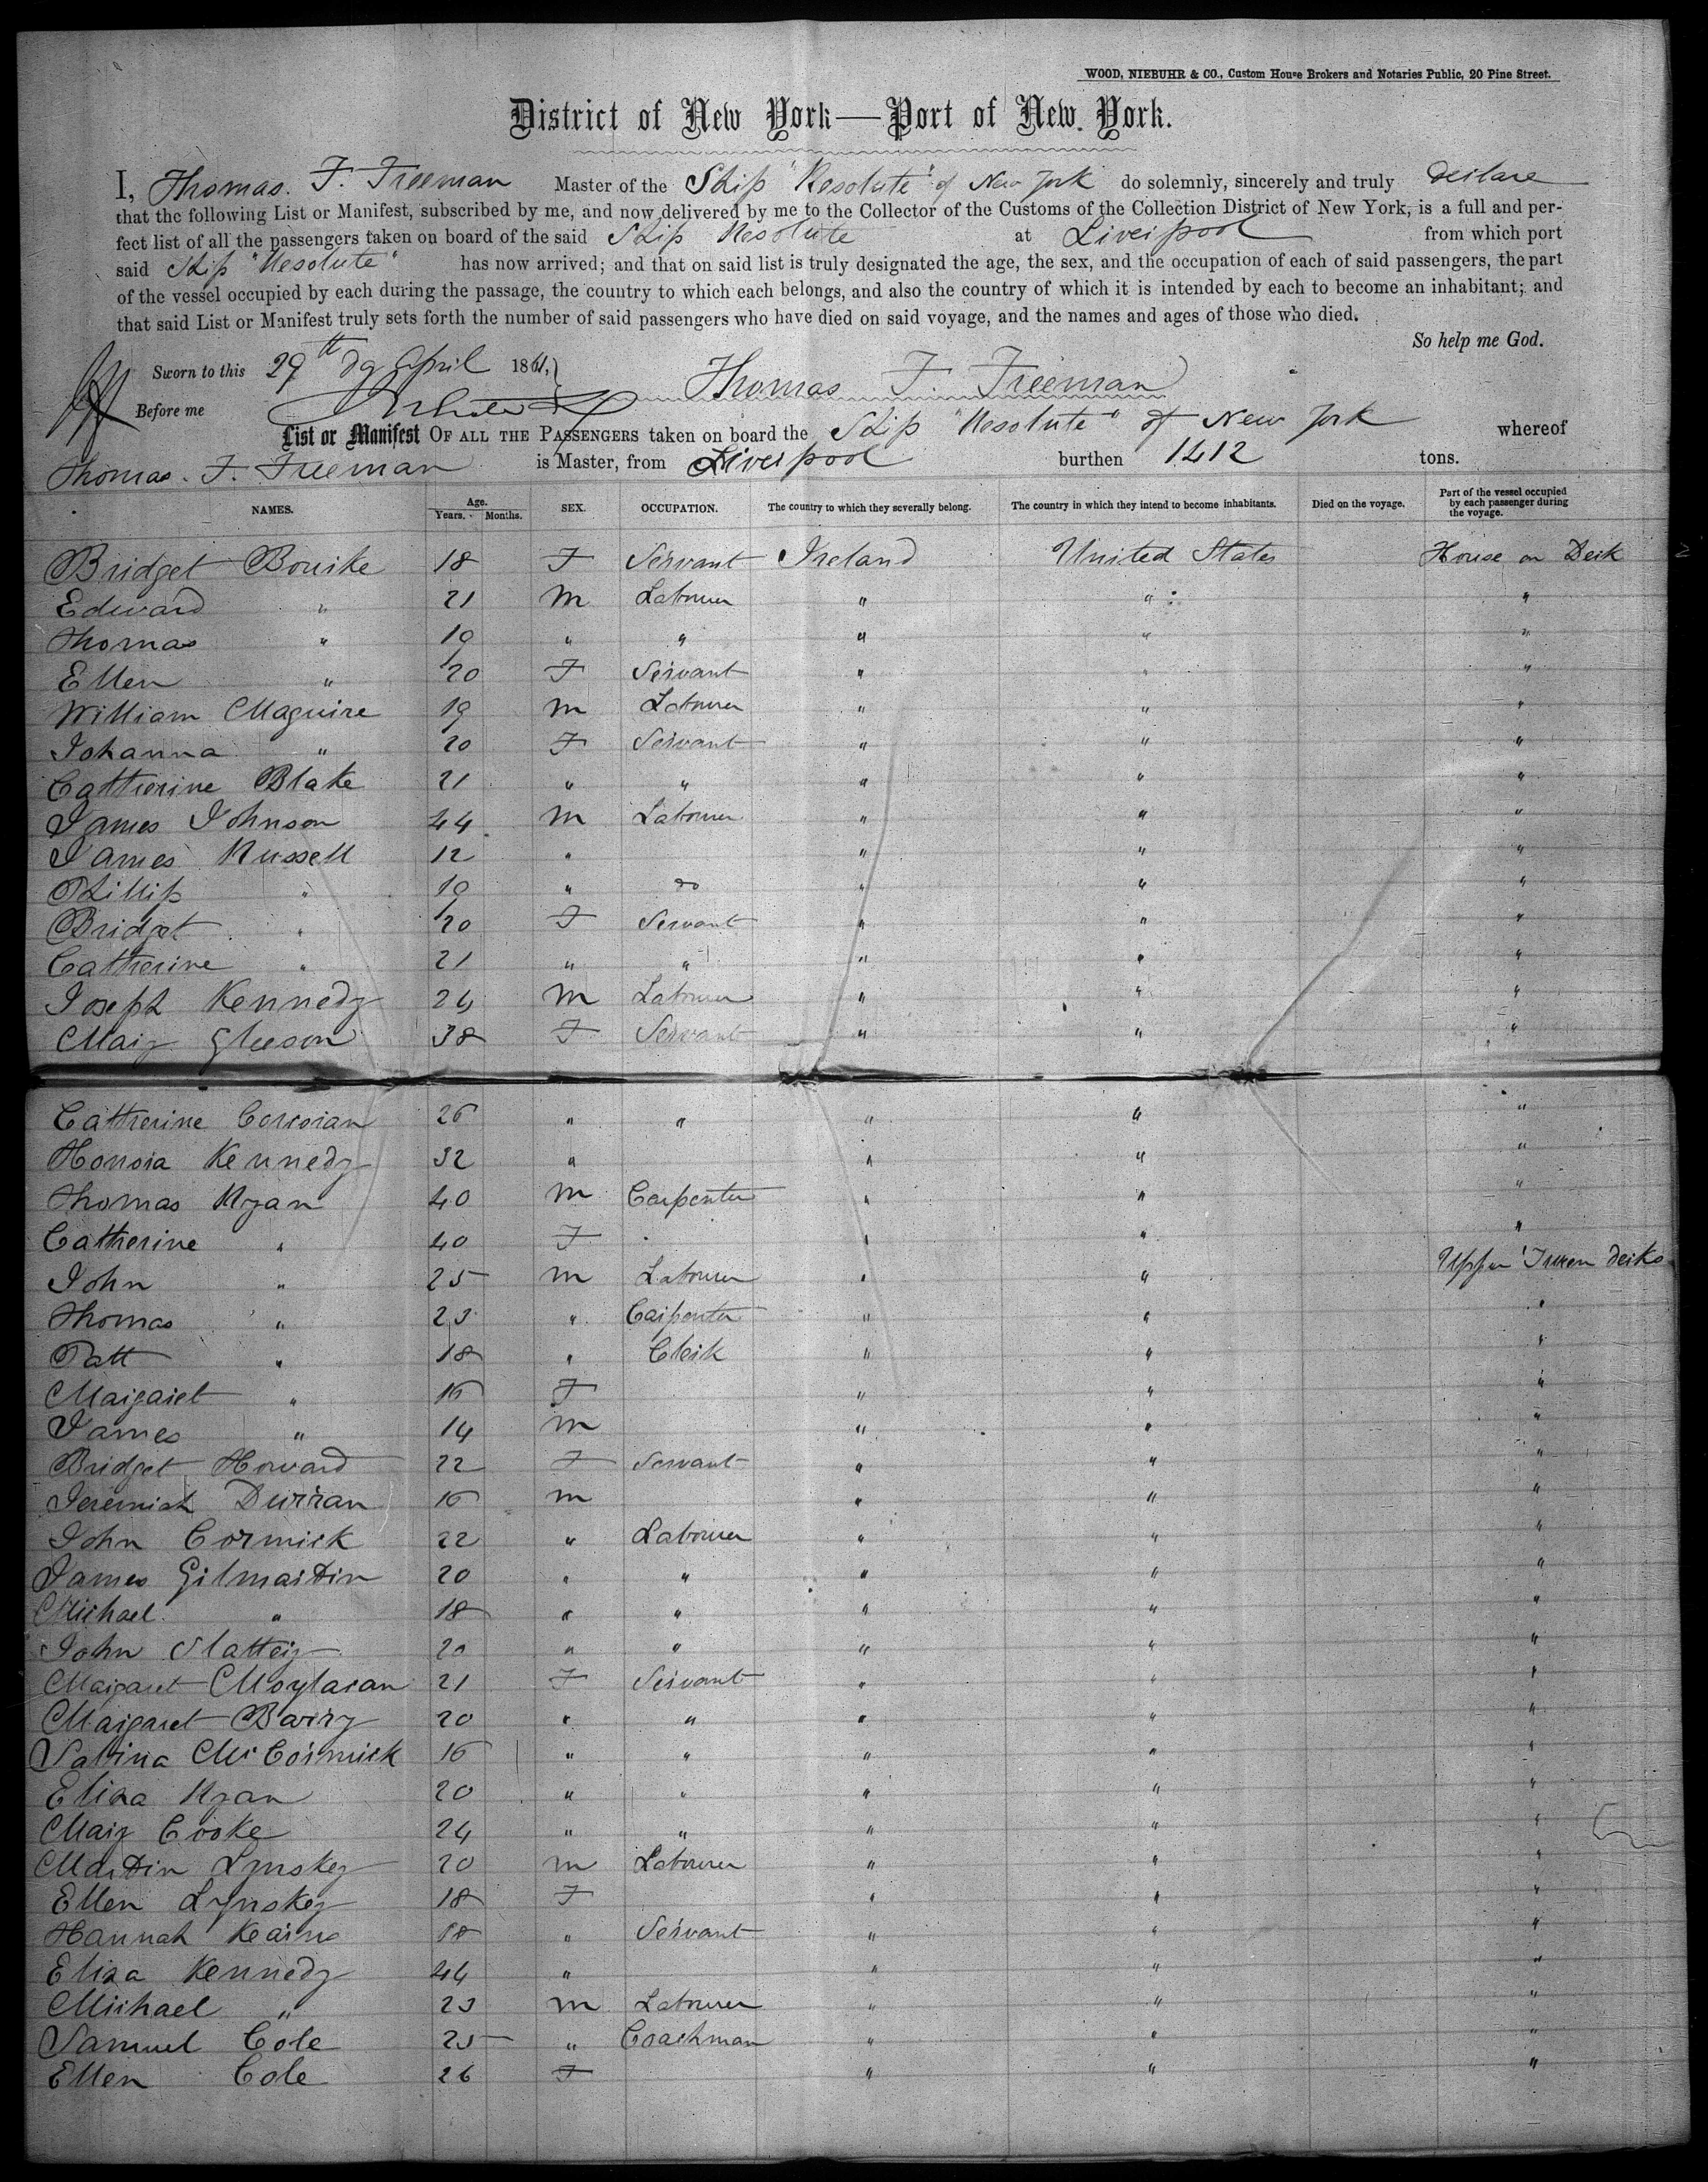 WOOD, NIEBUHR & CO., Custom House Brokers and Notaries Public, 20 Pine Street.
District of New York—Port of New York.
I, Thomas. F. Freeman Master of the Ship "Resolute" of New York do solemnly, sincerely and truly declare
that the following List or Manifest, subscribed by me, and now delivered by me to the Collector of the Customs of the Collection District of New York, is a full and per-
fect list of all the passengers taken on board of the said Ship Resolute at Liverpool from which port
said Ship "Resolute" has now arrived; and that on said list is truly designated the age, the sex, and the occupation of each of said passengers, the part
of the vessel occupied by each during the passage, the country to which each belongs, and also the country of which it is intended by each to become an inhabitant; and
that said List or Manifest truly sets forth the number of said passengers who have died on said voyage, and the names and ages of those who died.
So help me God.
Sworn to this 29th dy April 1861,
Thomas F. Freeman
Before me
List or Manifest OF ALL THE PASSENGERS taken on board the Ship "Resolute" of New York whereof
Thomas. F. Freeman is Master, from Liverpool burthen 1412 tons.
NAMES. Age. Years. Months. SEX. OCCUPATION. The country to which they severally belong. The country in which they intend to become inhabitants. Died on the voyage. Part of the vessel occupied by each passenger during the voyage.
Bridget Bourke 18 F Servant Ireland United States House on Deck
Edward " 21 M Labourer " " "
Thomas " 19 " " " " "
Ellen " 20 F Servant " " "
William Maguire 19 M Labourer " " "
Johanna " 20 F Servant " " "
Catherine Blake 21 " " " " "
James Johnson 44 M Labourer " " "
James Russell 12 " " " "
Phillip " 19 " do " " "
Bridget " 20 F Servant " " "
Catherine " 21 " " " " "
Joseph Kennedy 24 M Labourer " " "
Mary Gleeson 38 F Servant " " "
Catherine Corcoran 26 " " " " "
Honora Kennedy 32 " " " "
Thomas Ryan 40 M Carpenter " " "
Catherine " 40 F " " "
John " 25 M Labourer " " Upper 'Tween decks
Thomas " 23 " Carpenter " " "
Patt " 18 " Clerk " " "
Margaret " 16 F " " "
James " 14 M " " "
Bridget Howard 22 F Servant " " "
Jeremiah Durran 16 M " " "
John Cormick 22 " Labourer " " "
James Gilmartin 20 " " " " "
Michael " 18 " " " " "
John Slattery 20 " " " " "
Margaret Moylaran 21 F Servant " " "
Margaret Barry 20 " " " " "
Sabina McCormick 16 " " " " "
Eliza Ryan 20 " " " " "
Mary Cooke 24 " " " " "
Martin Lynskey 20 M Labourer " " "
Ellen Lynskey 18 F " " "
Hannah Kearns 18 " Servant " " "
Eliza Kennedy 44 " " " "
Michael " 23 M Labourer " " "
Samuel Cole 25 " Coachman " " "
Ellen Cole 26 F " " "